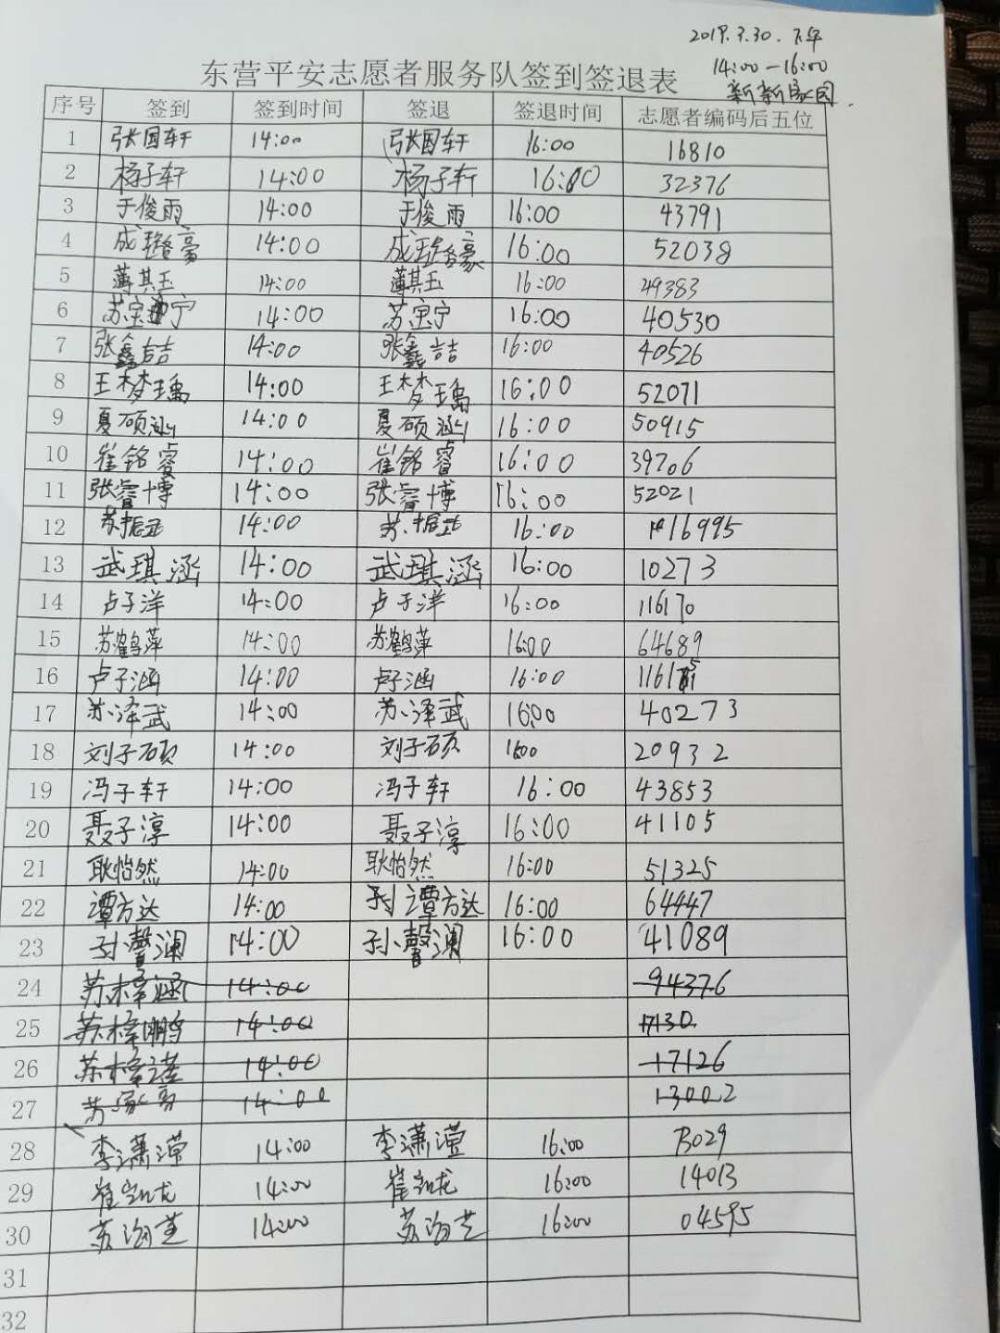 2019.3.30.下午
14:00-16:00
新新家园.
东营平安志愿者服务队签到签退表
序号 签到 签到时间 签退 签退时间 志愿者编码后五位
1 张国轩 14:00 张国轩 16:00 16810
2 杨子轩 14:00 杨子轩 16:00 32376
3 于俊雨 14:00 于俊雨 16:00 43791
4 成璐豪 14:00 成璐豪 16:00 52038
5 薄其玉 14:00 薄其玉 16:00 49383
6 苏宝宁 14:00 苏宝宁 16:00 40530
7 张鑫喆 14:00 张鑫喆 16:00 40526
8 王梦瑀 14:00 王梦瑀 16:00 52071
9 夏硕涵 14:00 夏硕涵 16:00 50915
10 崔铭睿 14:00 崔铭睿 16:00 39706
11 张睿博 14:00 张睿博 16:00 52021
12 苏振亚 14:00 苏振亚 16:00 16995
13 武琪涵 14:00 武琪涵 16:00 10273
14 卢子洋 14:00 卢子洋 16:00 116170
15 苏鹤萍 14:00 苏鹤萍 16:00 64689
16 卢子涵 14:00 卢子涵 16:00
17 苏泽武 14:00 苏泽武 16:00 40273
18 刘子硕 14:00 刘子硕 16:00 20932
19 冯子轩 14:00 冯子轩 16:00 43853
20 聂子淳 14:00 聂子淳 16:00 41105
21 耿怡然 14:00 耿怡然 16:00 51325
22 谭方达 14:00 谭方达 16:00 64447
23 孙馨澜 14:00 孙馨澜 16:00 41089
24 苏梓涵 14:00 94376
25 苏梓鹏 14:00 17130
26 苏梓谨 14:00 17126
27 苏家豪 14:00 13002
28 李潇滢 14:00 李潇滢 16:00 13029
29 崔凯龙 14:00 崔凯龙 16:00 14013
30 苏洵芝 14:00 苏洵芝 16:00 04595
31
32